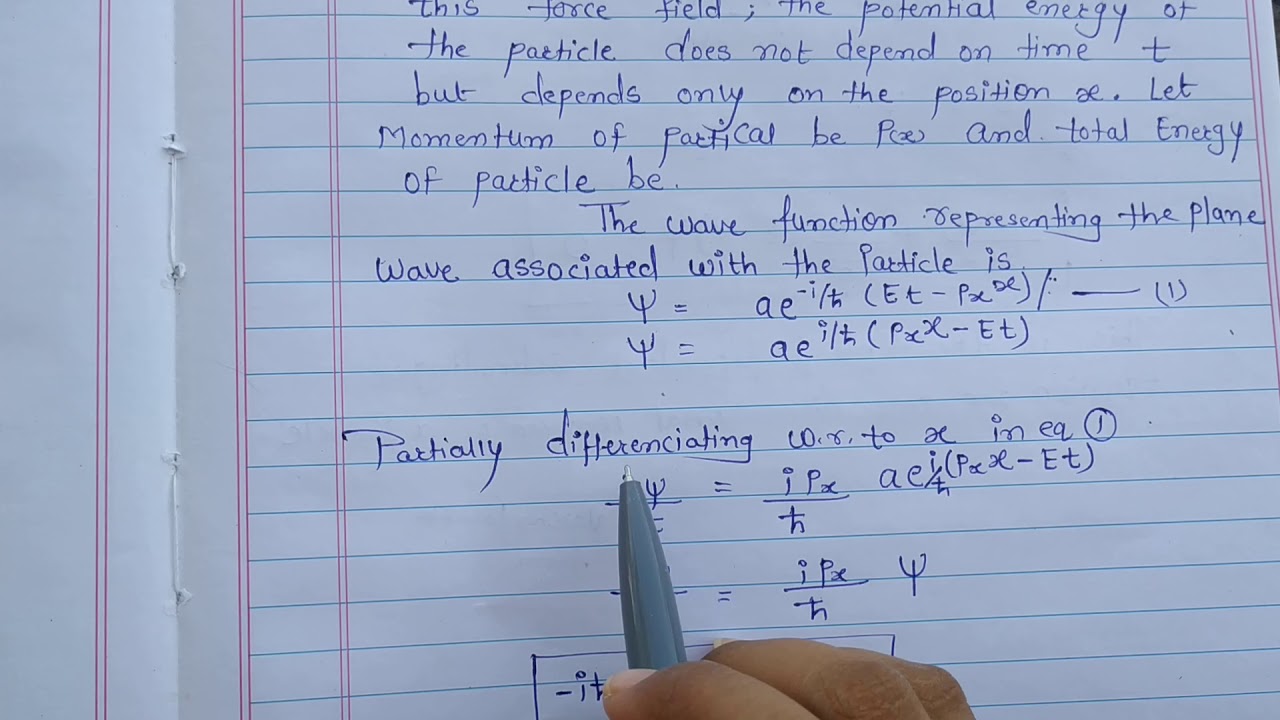 this force field ; the potential energy of
the particle does not depend on time t
but depends only on the position x. Let
Momentum of partical be P(x) and total Energy
of particle be.
The wave function representing the plane
wave associated with the Particle is
Ψ = ae^{-i/ħ (Et - Pₓx)} — (1)
Ψ = ae^{i/ħ (Pₓx - Et)}
Partially differenciating w.r. to x in eq ①
Ψ = iPₓ/ħ ae^{i/ħ (Pₓx - Et)}
= iPₓ/ħ Ψ
-iħ